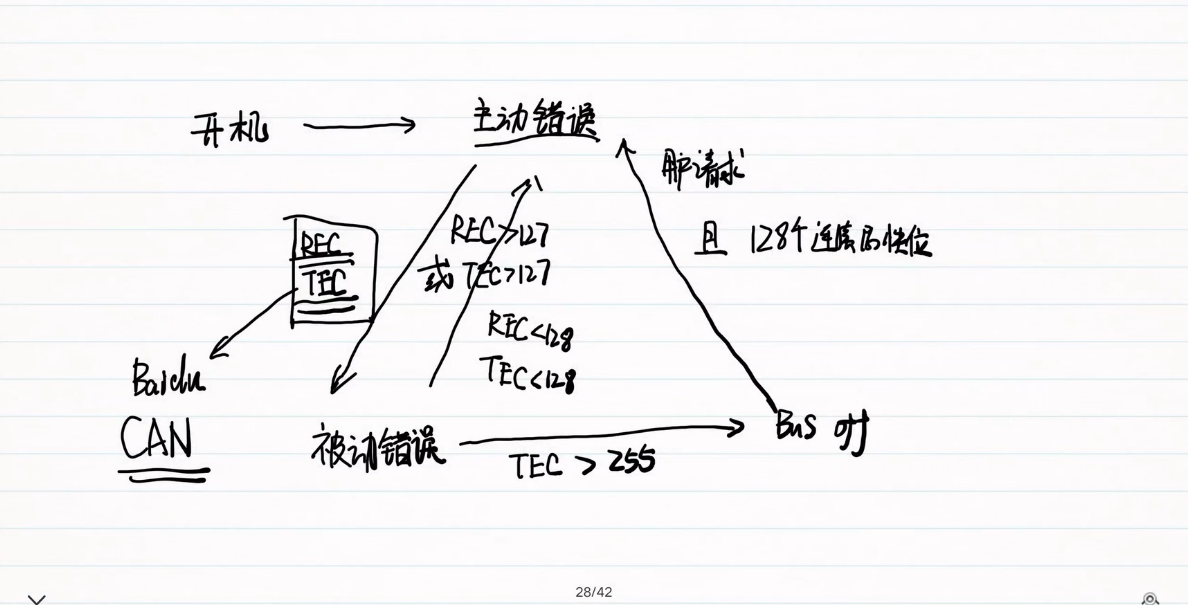 开机
主动错误
用户请求
REC>127
且 128个连续隐性位
REC
或 TEC>127
TEC
REC<128
TEC<128
Baidu
CAN
被动错误
Bus off
TEC > 255
28/42